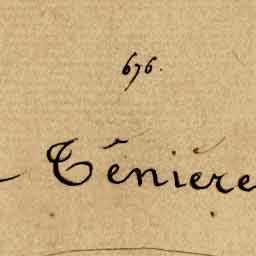 676.
Ténière